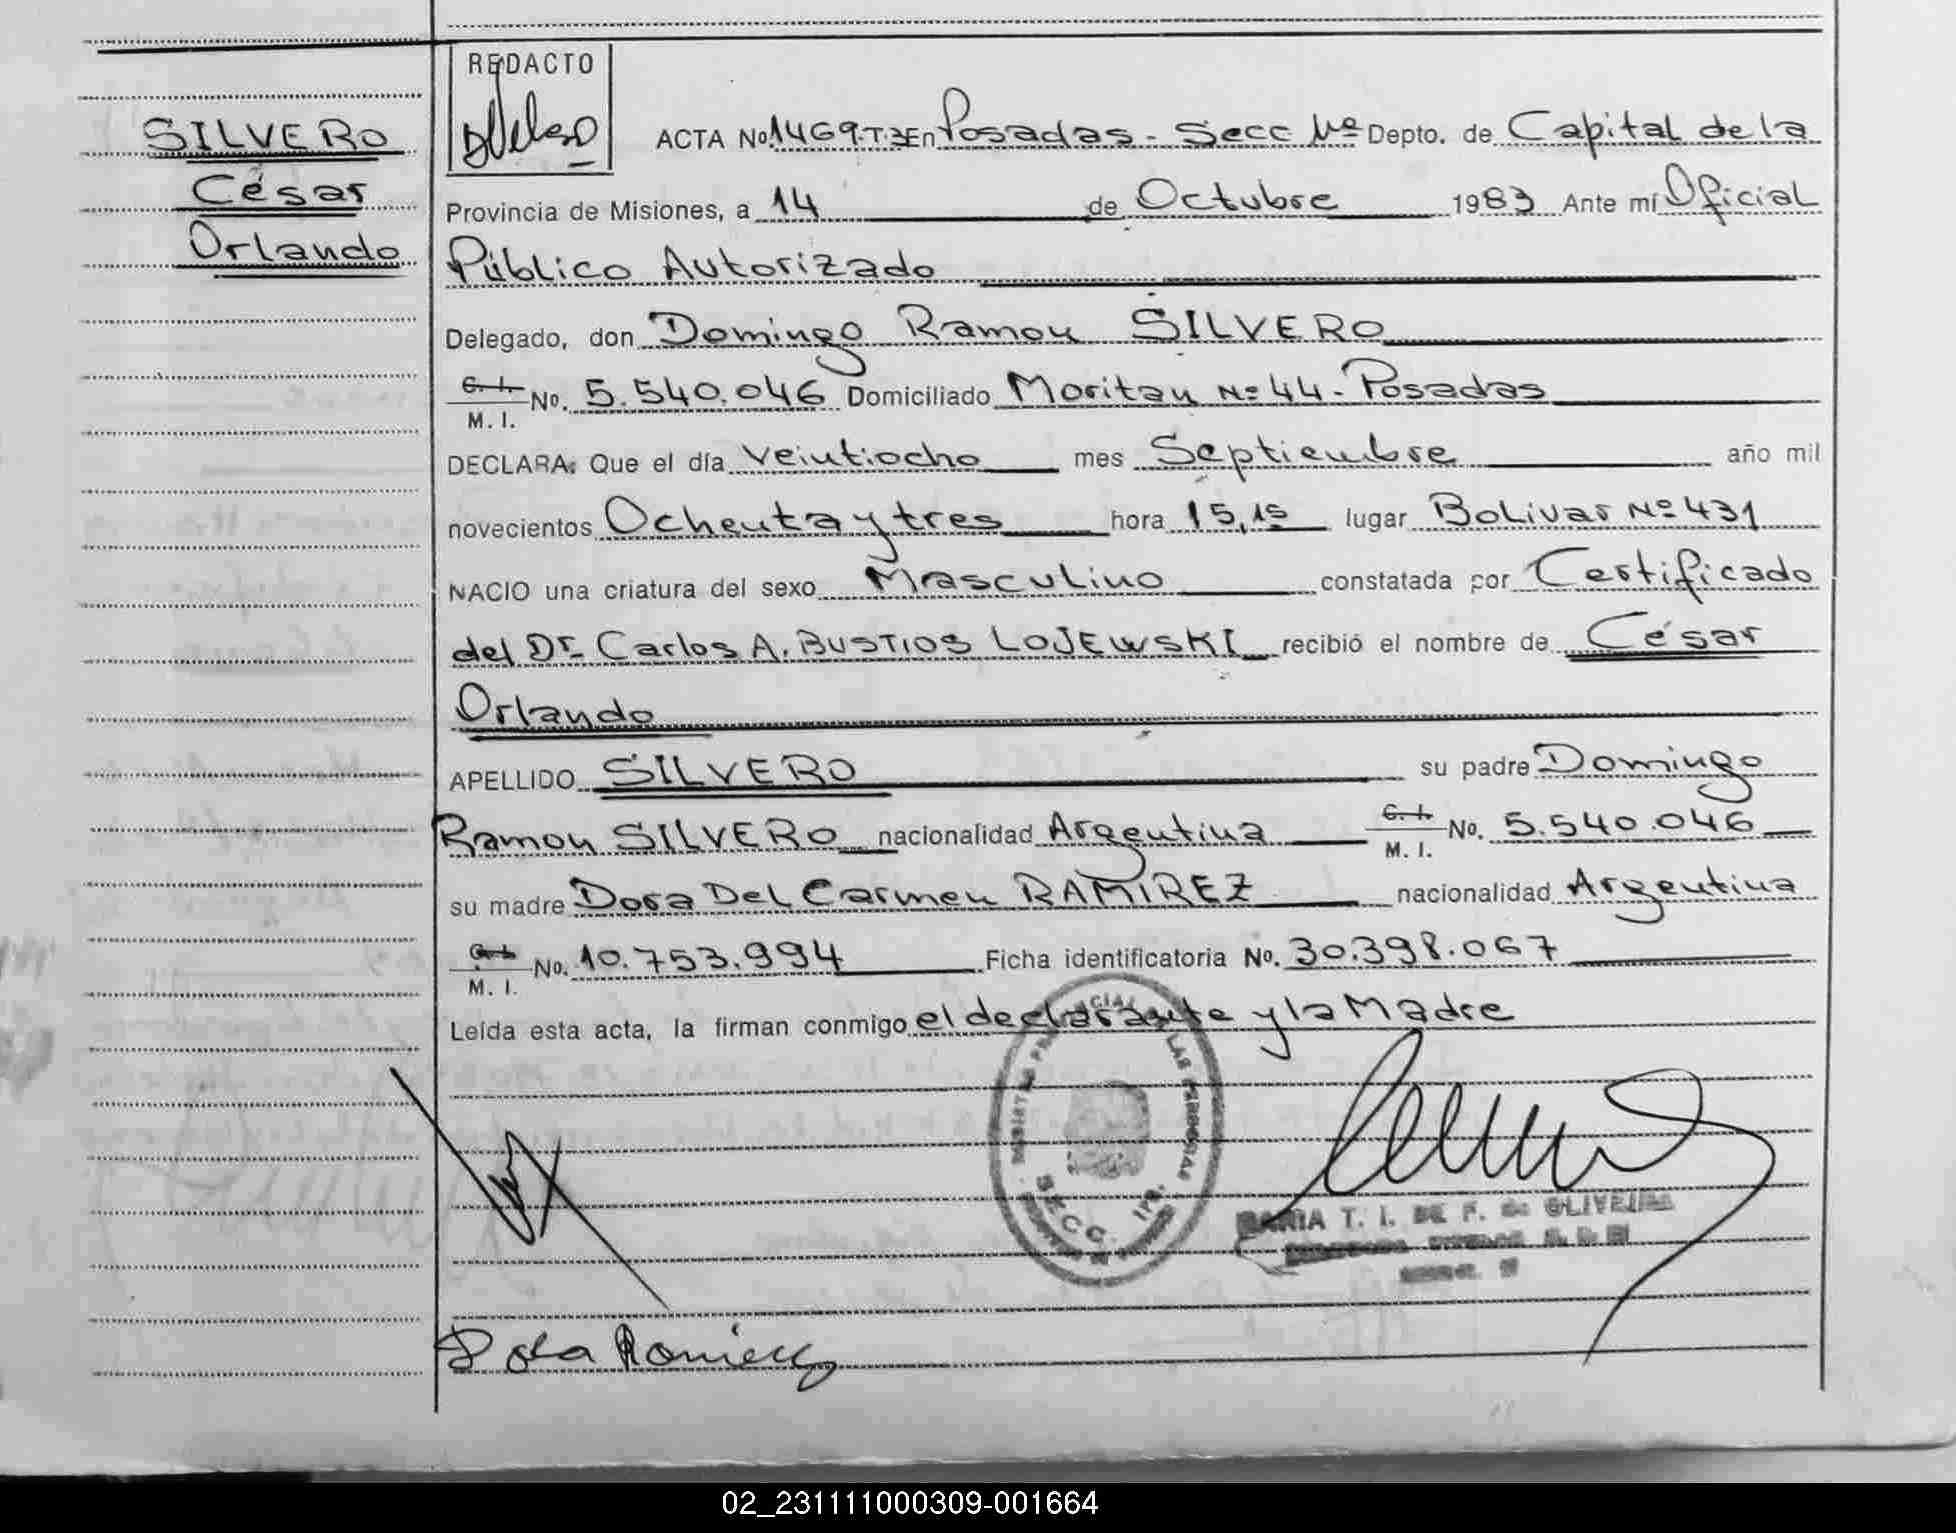 REDACTO
SILVERO
César
Orlando
ACTA No. 1469-T.3 En Posadas - Secc Nº Depto. de Capital de la
Provincia de Misiones, a 14 de Octubre 1983 Ante mí Oficial
Público Autorizado
Delegado, don Domingo Ramon SILVERO
C. I. No. 5.540.046 Domiciliado Moritan Nº 44 - Posadas
M. I.
DECLARA: Que el día veintiocho mes Septiembre año mil
novecientos Ochenta y tres hora 15,15 lugar Bolivar Nº 431
NACIO una criatura del sexo Masculino constatada por Certificado
del Dr. Carlos A. BUSTIOS LOJEWSKI recibió el nombre de César
Orlando
APELLIDO SILVERO su padre Domingo
Ramon SILVERO nacionalidad Argentina C. I. No. 5.540.046
M. I.
su madre Dora Del Carmen RAMIREZ nacionalidad Argentina
C. I. No. 10.753.994 Ficha identificatoria No. 30.398.067
M. I.
Leída esta acta, la firman conmigo el declarante y la Madre
LAS PERSONAS
SECC. 1ra.
MARIA T. I. DE F. de OLIVEIRA
Dora Ramirez
02_231111000309-001664